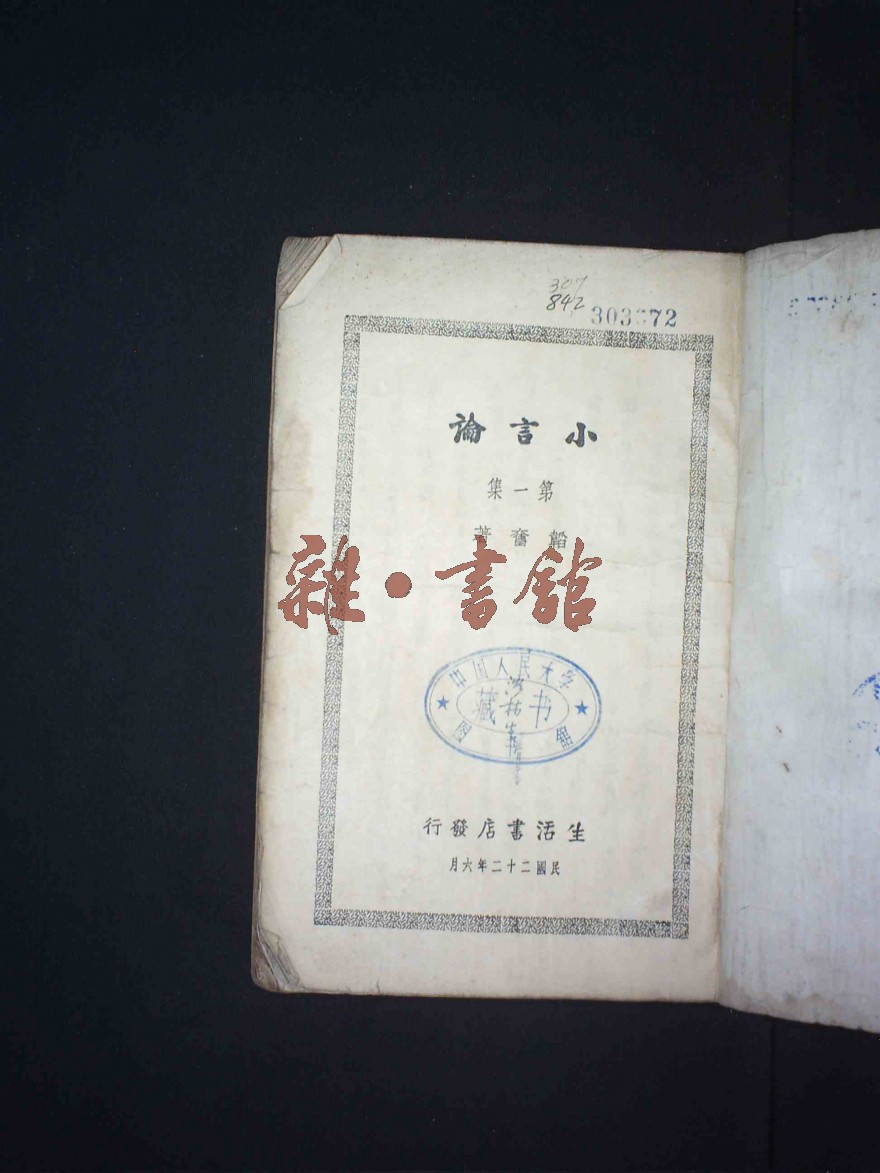 307
842
小言論
第一集
韜奮著
雜·書館
中国人民大学
藏书
图 馆
生活書店發行
民國二十二年六月